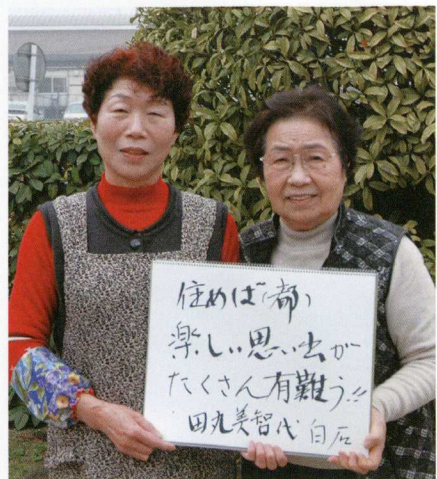 住めば「都」
楽しい思い出が
たくさん有難う!!
田丸美智代 白石